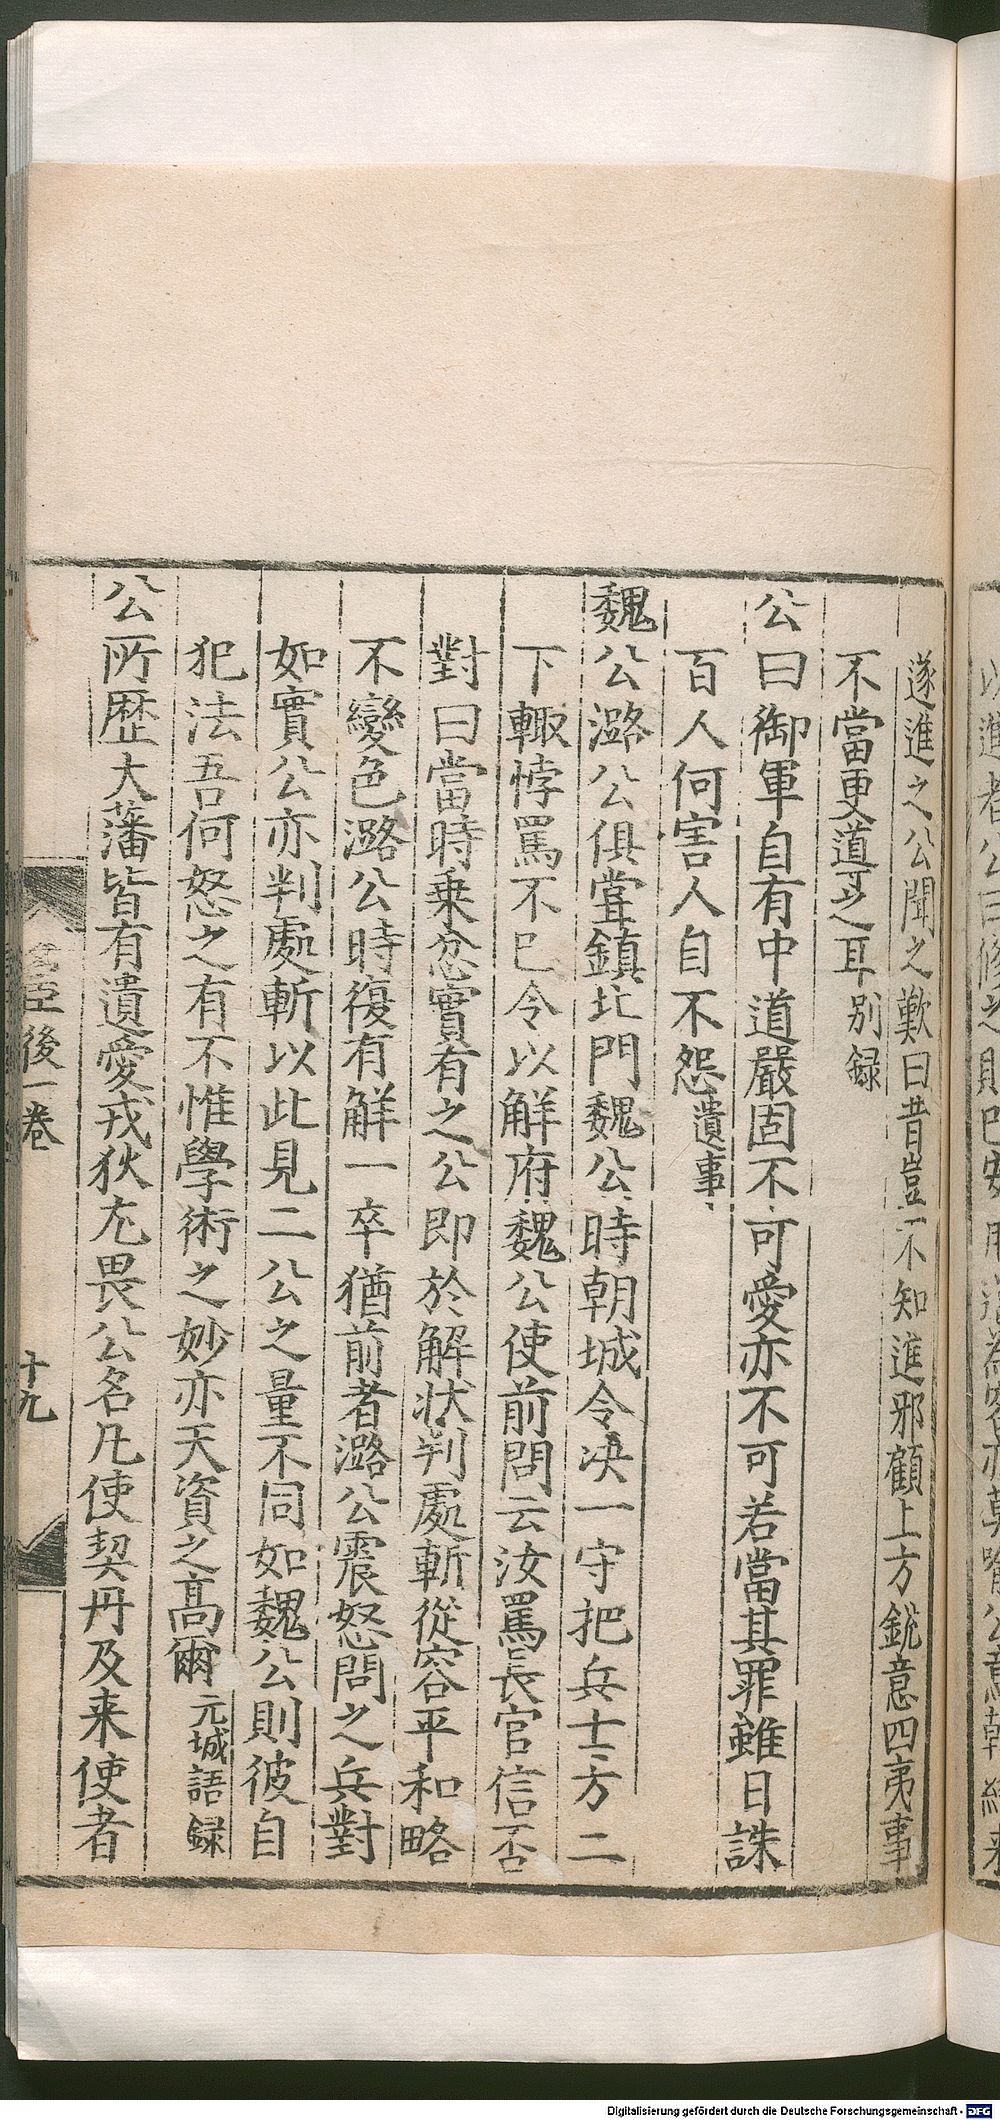 遂進之公聞之歎曰昔豈不知進邪顧上方銳意四夷事
不當更道之耳別録
公曰御軍自有中道嚴固不可愛亦不可若當其罪雖日誅
百人何害人自不怨遺事
魏公潞公俱嘗鎮北門魏公時朝城令决一守把兵士方二
下輙悖罵不已令以解府魏公使前問云汝罵長官信否
對曰當時乗忿實有之公即於解状判處斬從容平和略
不變色潞公時復有解一卒猶前者潞公震怒問之兵對
如實公亦判處斬以此見二公之量不同如魏公則彼自
犯法吾何怒之有不惟學術之妙亦天資之髙爾元城語録
公所歴大藩皆有遺愛戎狄尤畏公名凡使契丹及来使者
臣後一卷
十九
Digitalisierung gefördert durch die Deutsche Forschungsgemeinschaft - DFG